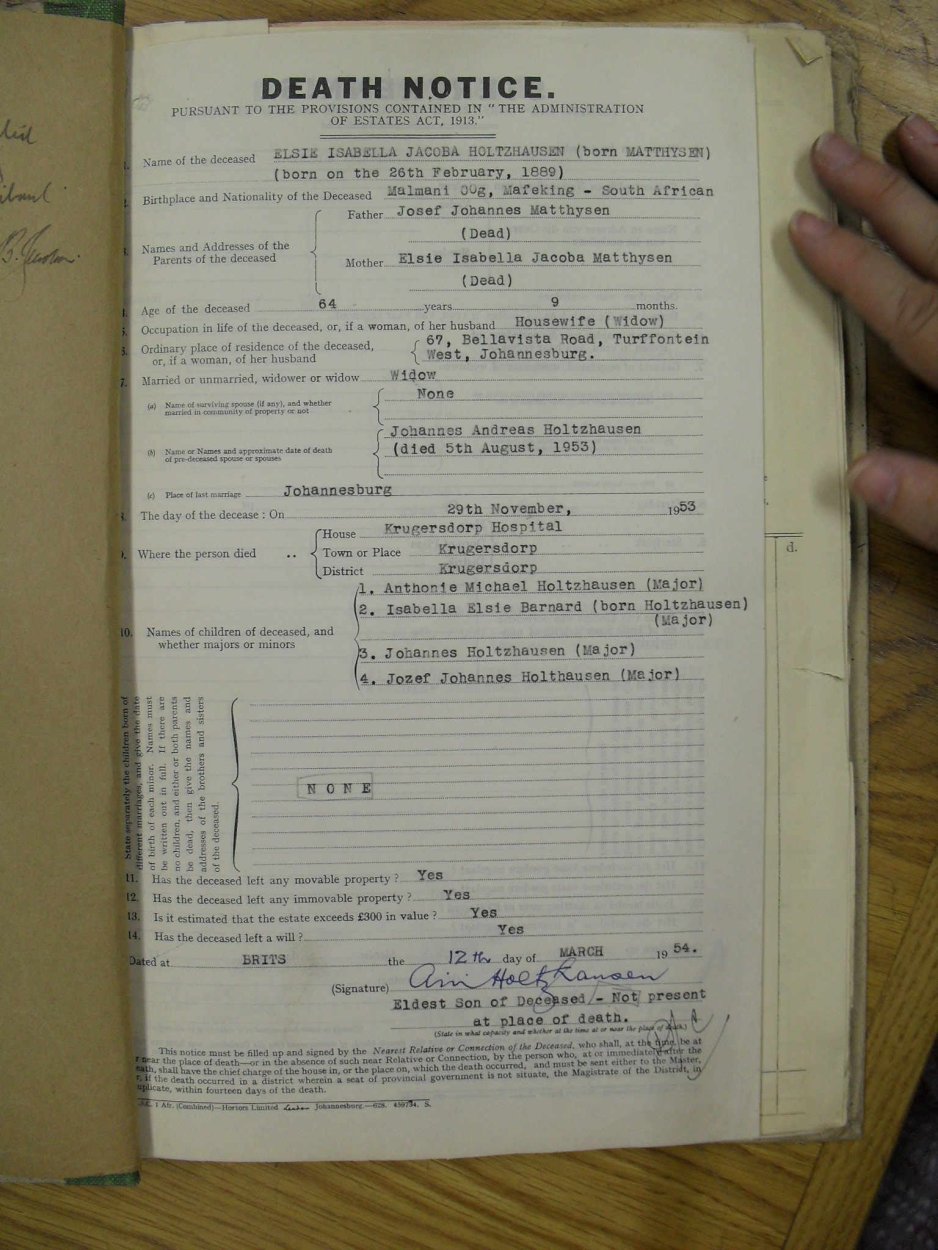 DEATH NOTICE.
PURSUANT TO THE PROVISIONS CONTAINED IN "THE ADMINISTRATION
OF ESTATES ACT, 1913."
Name of the deceased ELSIE ISABELLA JACOBA HOLTZHAUSEN (born MATTHYSEN)
(born on the 26th February, 1889)
Birthplace and Nationality of the Deceased Malmani Oog, Mafeking - South African
Names and Addresses of the
Parents of the deceased
Father Josef Johannes Matthysen
(Dead)
Mother Elsie Isabella Jacoba Matthysen
(Dead)
Age of the deceased 64 years 9 months.
Occupation in life of the deceased, or, if a woman, of her husband Housewife (Widow)
Ordinary place of residence of the deceased,
or, if a woman, of her husband
67, Bellavista Road, Turffontein
West, Johannesburg.
7. Married or unmarried, widower or widow Widow
(a) Name of surviving spouse (if any), and whether
married in community of property or not
None
(b) Name or Names and approximate date of death
of pre-deceased spouse or spouses
Johannes Andreas Holtzhausen
(died 5th August, 1953)
(c) Place of last marriage Johannesburg
The day of the decease : On 29th November, 1953
Where the person died ..
House Krugersdorp Hospital
Town or Place Krugersdorp
District Krugersdorp
10. Names of children of deceased, and
whether majors or minors
1. Anthonie Michael Holtzhausen (Major)
2. Isabella Elsie Barnard (born Holtzhausen)
(Major)
3. Johannes Holtzhausen (Major)
4. Jozef Johannes Holthausen (Major)
State separately the children born of
different marriages, and give the date
of birth of each minor. Names must
be written out in full. If there are
no children, and either or both parents
be dead, then give the names and
addresses of the brothers and sisters
of the deceased.
NONE
11. Has the deceased left any movable property ? Yes
12. Has the deceased left any immovable property ? Yes
13. Is it estimated that the estate exceeds £300 in value ? Yes
14. Has the deceased left a will ? Yes
Dated at BRITS the 12th day of MARCH 1954.
(Signature) Holtzhausen
Eldest Son of Deceased - Not present
at place of death.
(State in what capacity and whether at the time at or near the place of death.)
This notice must be filled up and signed by the Nearest Relative or Connection of the Deceased, who shall, at the time, be at
or near the place of death—or in the absence of such near Relative or Connection, by the person who, at or immediately after the
death, shall have the chief charge of the house in, or the place on, which the death occurred, and must be sent either to the Master,
or, if the death occurred in a district wherein a seat of provincial government is not situate, the Magistrate of the District, in
duplicate, within fourteen days of the death.
1 Afr. (Combined)—Hortors Limited Johannesburg.—628. 459734. S.
d.